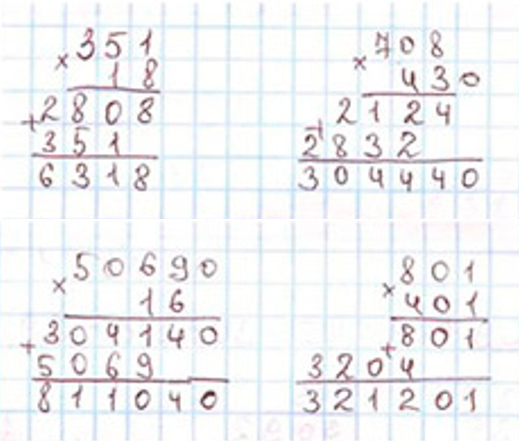 × 351
18
+ 2808
351
6318
× 708
430
+ 2124
2832
304440
× 50690
16
+ 304140
5069
811040
× 801
401
+ 801
3204
321201